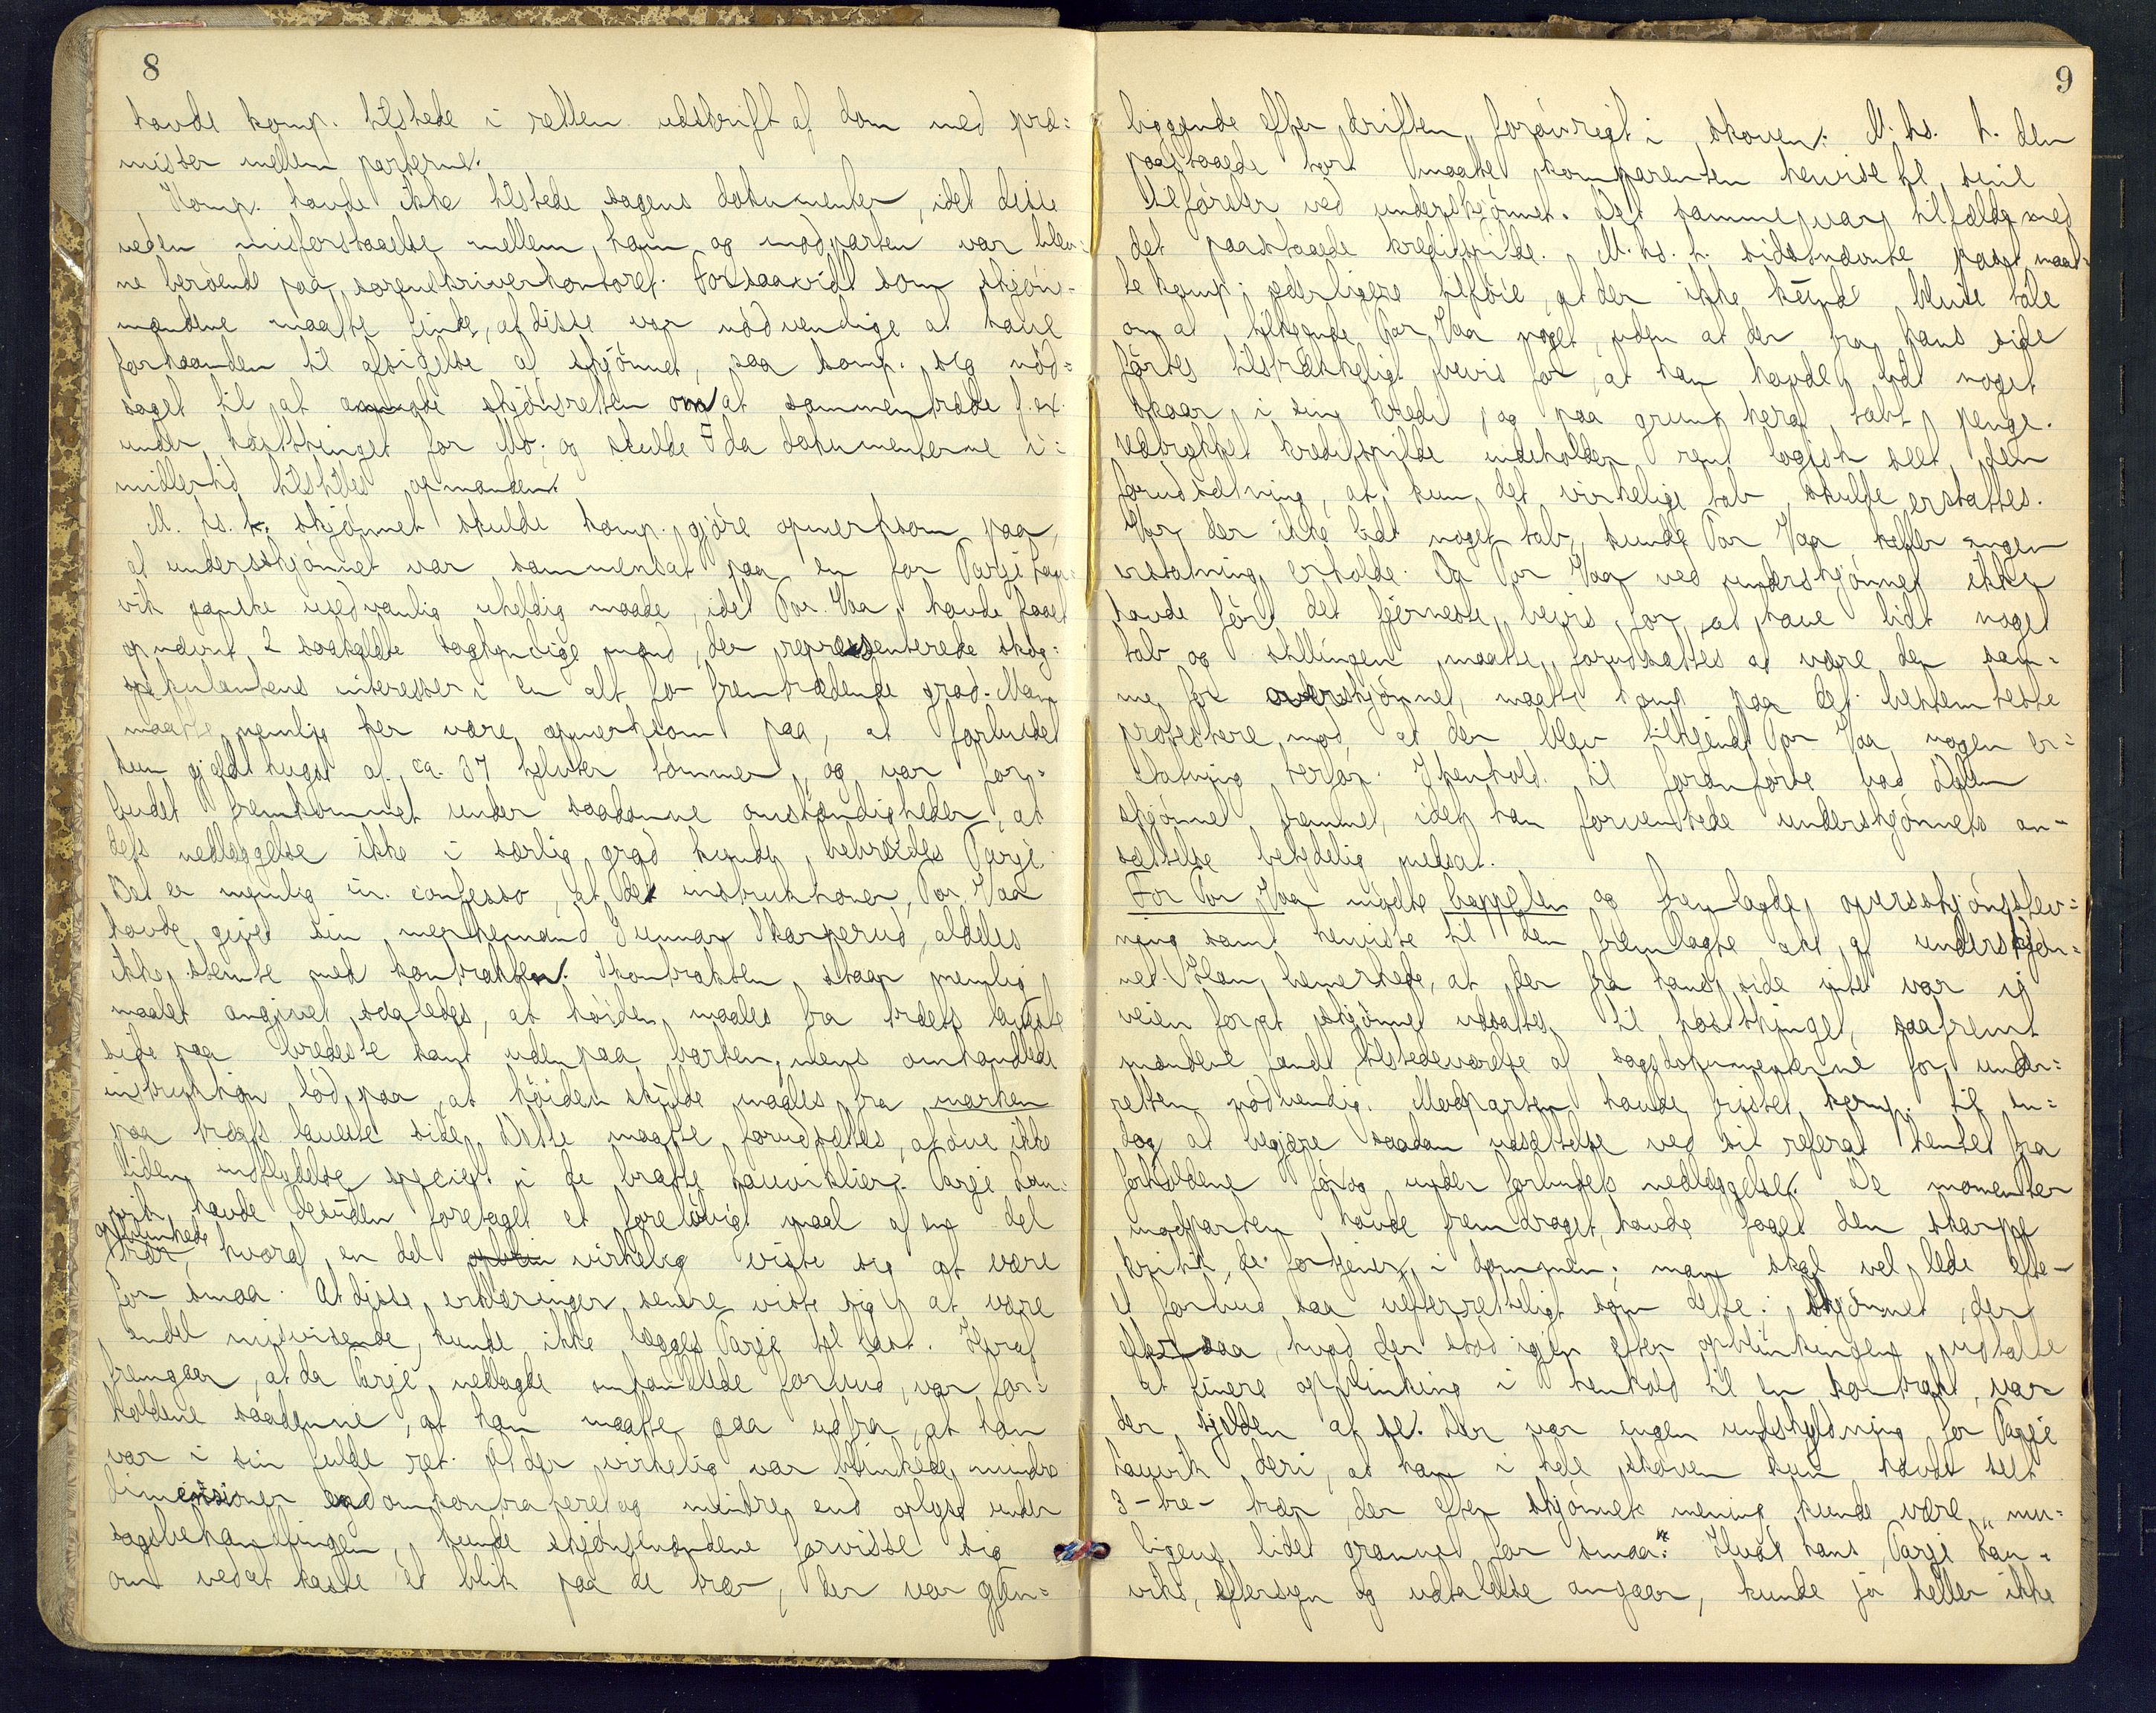 8
havde komp. tilstede i retten udskrift af dom med præ=
misser mellem parterne.
Komp. havde ikke tilstede sagens dokumenter, idet disse
ved en misforstaaelse mellem ham og modparten var blev=
ne beroende paa sorenskriverkontoret. Forsaavidt som skjøns=
mændene maatte finde, at disse var nødvendige at have
forhaanden til afsigelse af skjønnet, saa komp. sig nød=
saget til at anmode skjønsretten om at sammentræde f.ex.
under høstthinget for Mo. og skulde da dokumenterne i=
midlertid tilstilles opmanden.
M. hs. t. skjønnet skulde komp. gjøre opmerksom paa,
at underskjønnet var sammensat paa en for Tarjé Hau=
vik ganske usedvanlig uheldig maade, idet Tor Vaa havde faaet
opnævnt 2 saakaldte sagkyndige mænd, der repræsenterede skog=
spekulantens interesser i en alt for fremtrædende grad. Man
maatte nemlig her være opmerksom paa, at forbudet
kun gjaldt hugst af ca. 37 tylvter tømmer, og var for=
budet fremkommet under saadanne omstændigheder, at
dets nedlæggelse ikke i særlig grad kunde bebreides Tarjé.
Det er nemlig in confesso, at de instruktioner, Tor Vaa
havde givet sin merkemand Gunnar Skarperud, aldeles
ikke stemte med kontrakten. I kontrakten staar nemlig
maalet angivet saaledes, at høiden maales fra træets laveste
side paa bredeste kant udenpaa barken, mens omhandlede
instruktion lød paa, at høiden skulde maales fra marken
paa træets laveste side. Dette maatte forudsættes, at øve ikke
liden indflydelse specielt i de bratte Hauviklier. Tarjé Hau=
vik havde desuden foretaget et foreløbigt maal af en del
opblinkede
trær, hvoraf en del virkelig viste sig at være
for smaa. At disse erklæringer senere viste sig at være
endel misvisende, kunde ikke lægges Tarjé til last. Heraf
fremgaar, at da Tarjé nedlagde omhandlede forbud, var for=
holdene saadanne, at han maatte gaa udfra, at han
var i sin fulde ret. At der virkelig var blinkede mindre
dimensioner end omkontraheret og mindre end oplyst under
sagsbehandlingen, kunde skjønsmændene forvisse sig
om ved at kaste et blik paa de trær, der var gjen=
9
liggende efter driften forøvrigt i skoven. M. hs. t. den
paastaaede tort maatte komparenten henvise til sine
tilførsler ved underskjønnet. Det samme var tilfælde med
det paastaaede kreditspilde. M. hs. t. sidstnævnte post maat=
te komp. yderligere tilføie, at der ikke kunde blive tale
om at tilkjende Tor Vaa noget, uden at der fra hans side
førtes tilstrækkeligt bevis for, at han havde lidt noget
skaar i sin kredit og paa grund heraf tabt penge.
Udtrykket kreditspilde indeholder rent logisk seet den
forudsætning, at kun det virkelige tab skulde erstattes.
Var der ikke lidt noget tab, kunde Tor Vaa heller ingen
erstatning erholde. Da Tor Vaa ved underskjønnet ikke
havde ført det fjerneste bevis for at have lidt noget
tab og stillingen maatte forudsættes at være den sam=
me for overskjønnet, maatte komp. paa det bestemteste
protestere mod, at der blev tilkjendt Tor Vaa nogen er=
statning herfor. I henhold til foranførte bad Dalen
skjønnet fremmet, idet han forventede underskjønnets an=
sættelse betydelig nedsat.
For Tor Vaa mødte Cappelen og fremlagde overskjønsstev=
ning samt henviste til den fremlagte akt af underskjøn=
net. Han bemerkede, at der fra hans side intet var i
veien for at skjønnet udsattes til høstthinget, saafremt
mændene fandt tilstedeværelse af sagsdokumenterne for under=
retten nødvendig. Modparten havde vistet komp. til en=
dog at begjære saadan udsættelse ved sit referat hentet fra
forholdene før og under forbudets nedlæggelse. De momenter
modparten havde fremdraget, havde faaet den skarpe
kritik, de fortjener, i dommen; man skal vel lede efter
et forbud saa uefterretteligt som dette; skjønnet, der
eftersaa, hvad der stod igjen efter opblinkingen, udtalte
at finere opblinking i henhold til en kontrakt, var
der sjelden at se. Der var ingen undskyldning for Tarjé
Hauvik deri, at han i hele skoven kun havde seet
3-tre- trær, der efter skjønnets mening kunde være „mu=
ligens lidet grannet for smaa." Hvad hans, Tarjé Hau=
viks, eftersyn og udtalelse angaar, kunde jo heller ikke